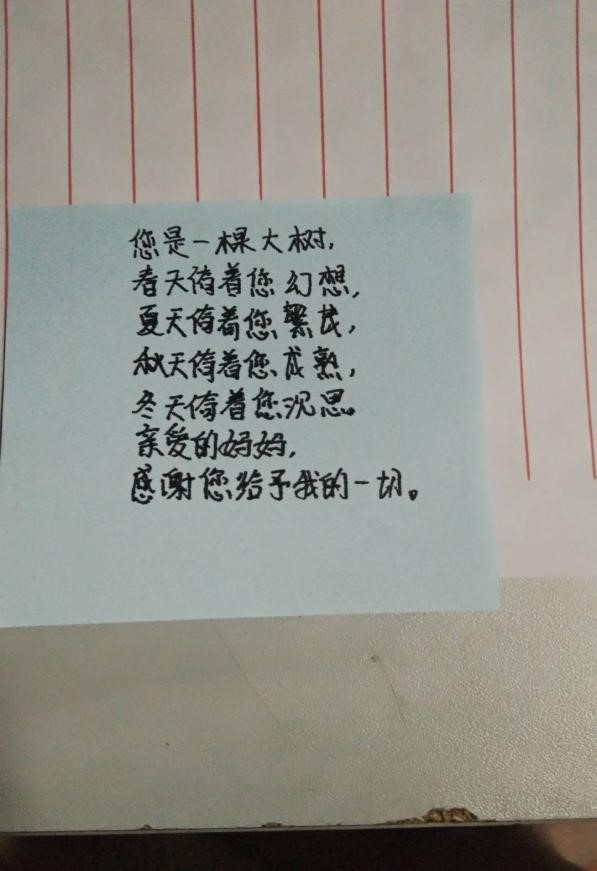 您是一棵大树，
春天倚着您幻想，
夏天倚着您繁茂，
秋天倚着您成熟，
冬天倚着您沉思。
亲爱的妈妈，
感谢您给予我的一切。